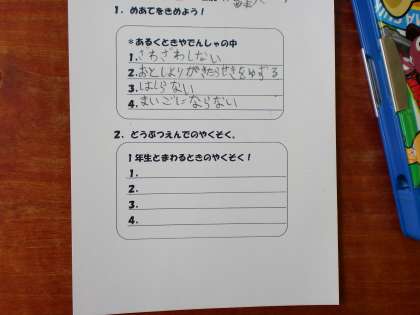 1. めあてをきめよう！
＊あるくときやでんしゃの中
1. さわざわしない
2. おとしよりがきたらせきをゆずる
3. はしらない
4. まいごにならない
2. どうぶつえんでのやくそく。
1年生とまわるときのやくそく！
1.
2.
3.
4.